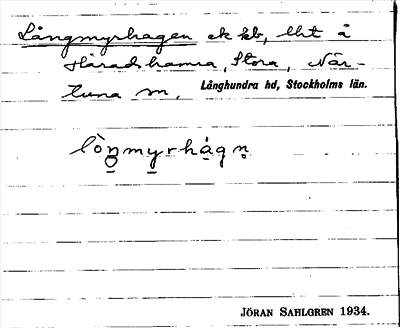 Långmyrhagen ek kb, lht å
Häradshamra, Stora, När-
tuna sn, Långhundra hd, Stockholms län.
lòŋmyrhágn̥
JÖRAN SAHLGREN 1934.